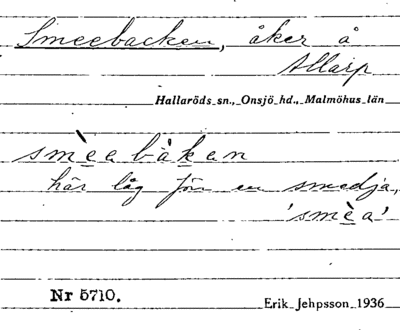 Smeebacken, åker å
Allarp
Hallaröds sn., Onsjö hd., Malmöhus län
smèeabàkan
här låg förr en smedja,
'smèa'
Nr 5710.
Erik Jehpsson 1936